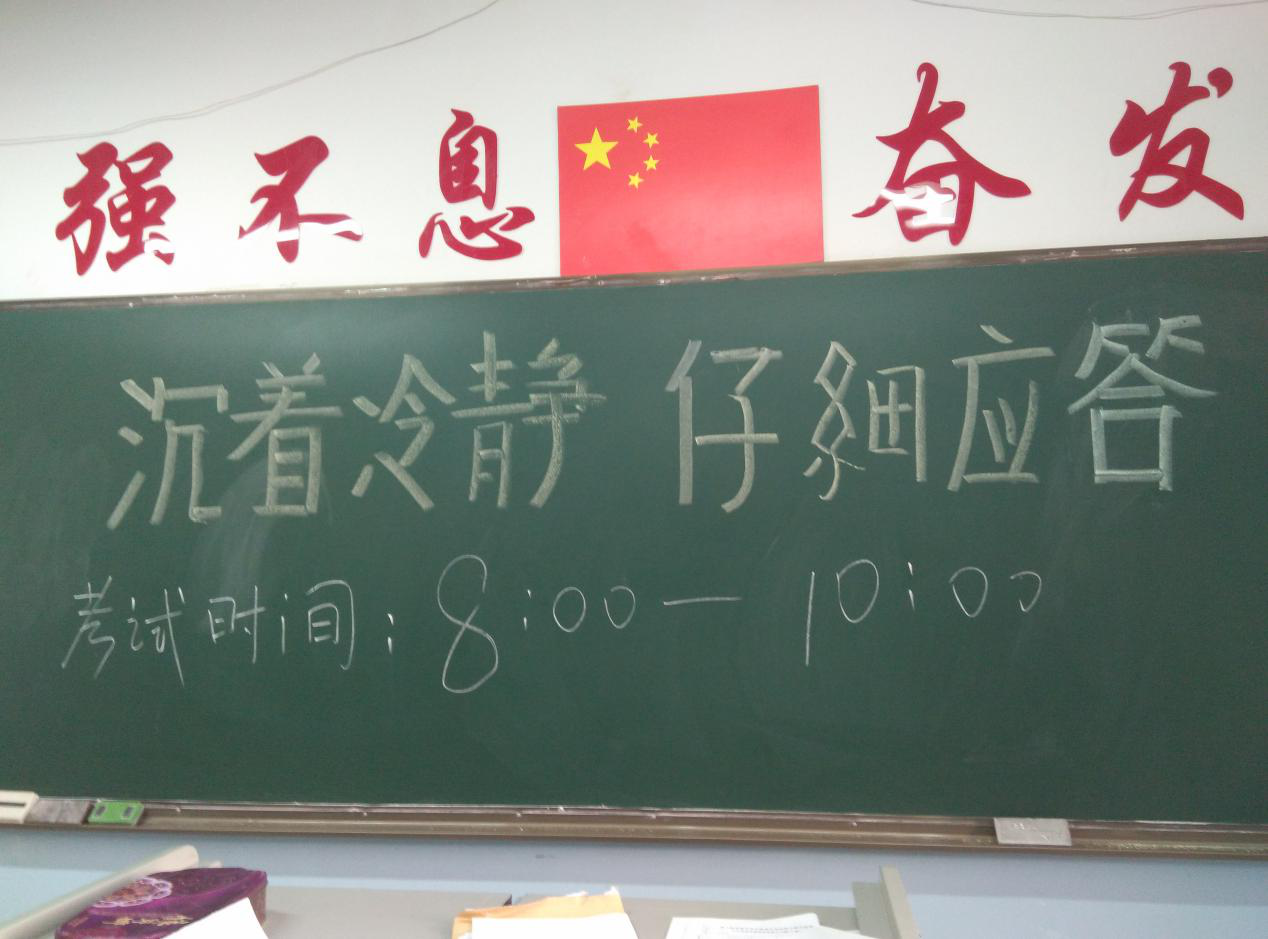 强不息 奋发
沉着冷静 仔細应答
考试时间:8:00—10:00